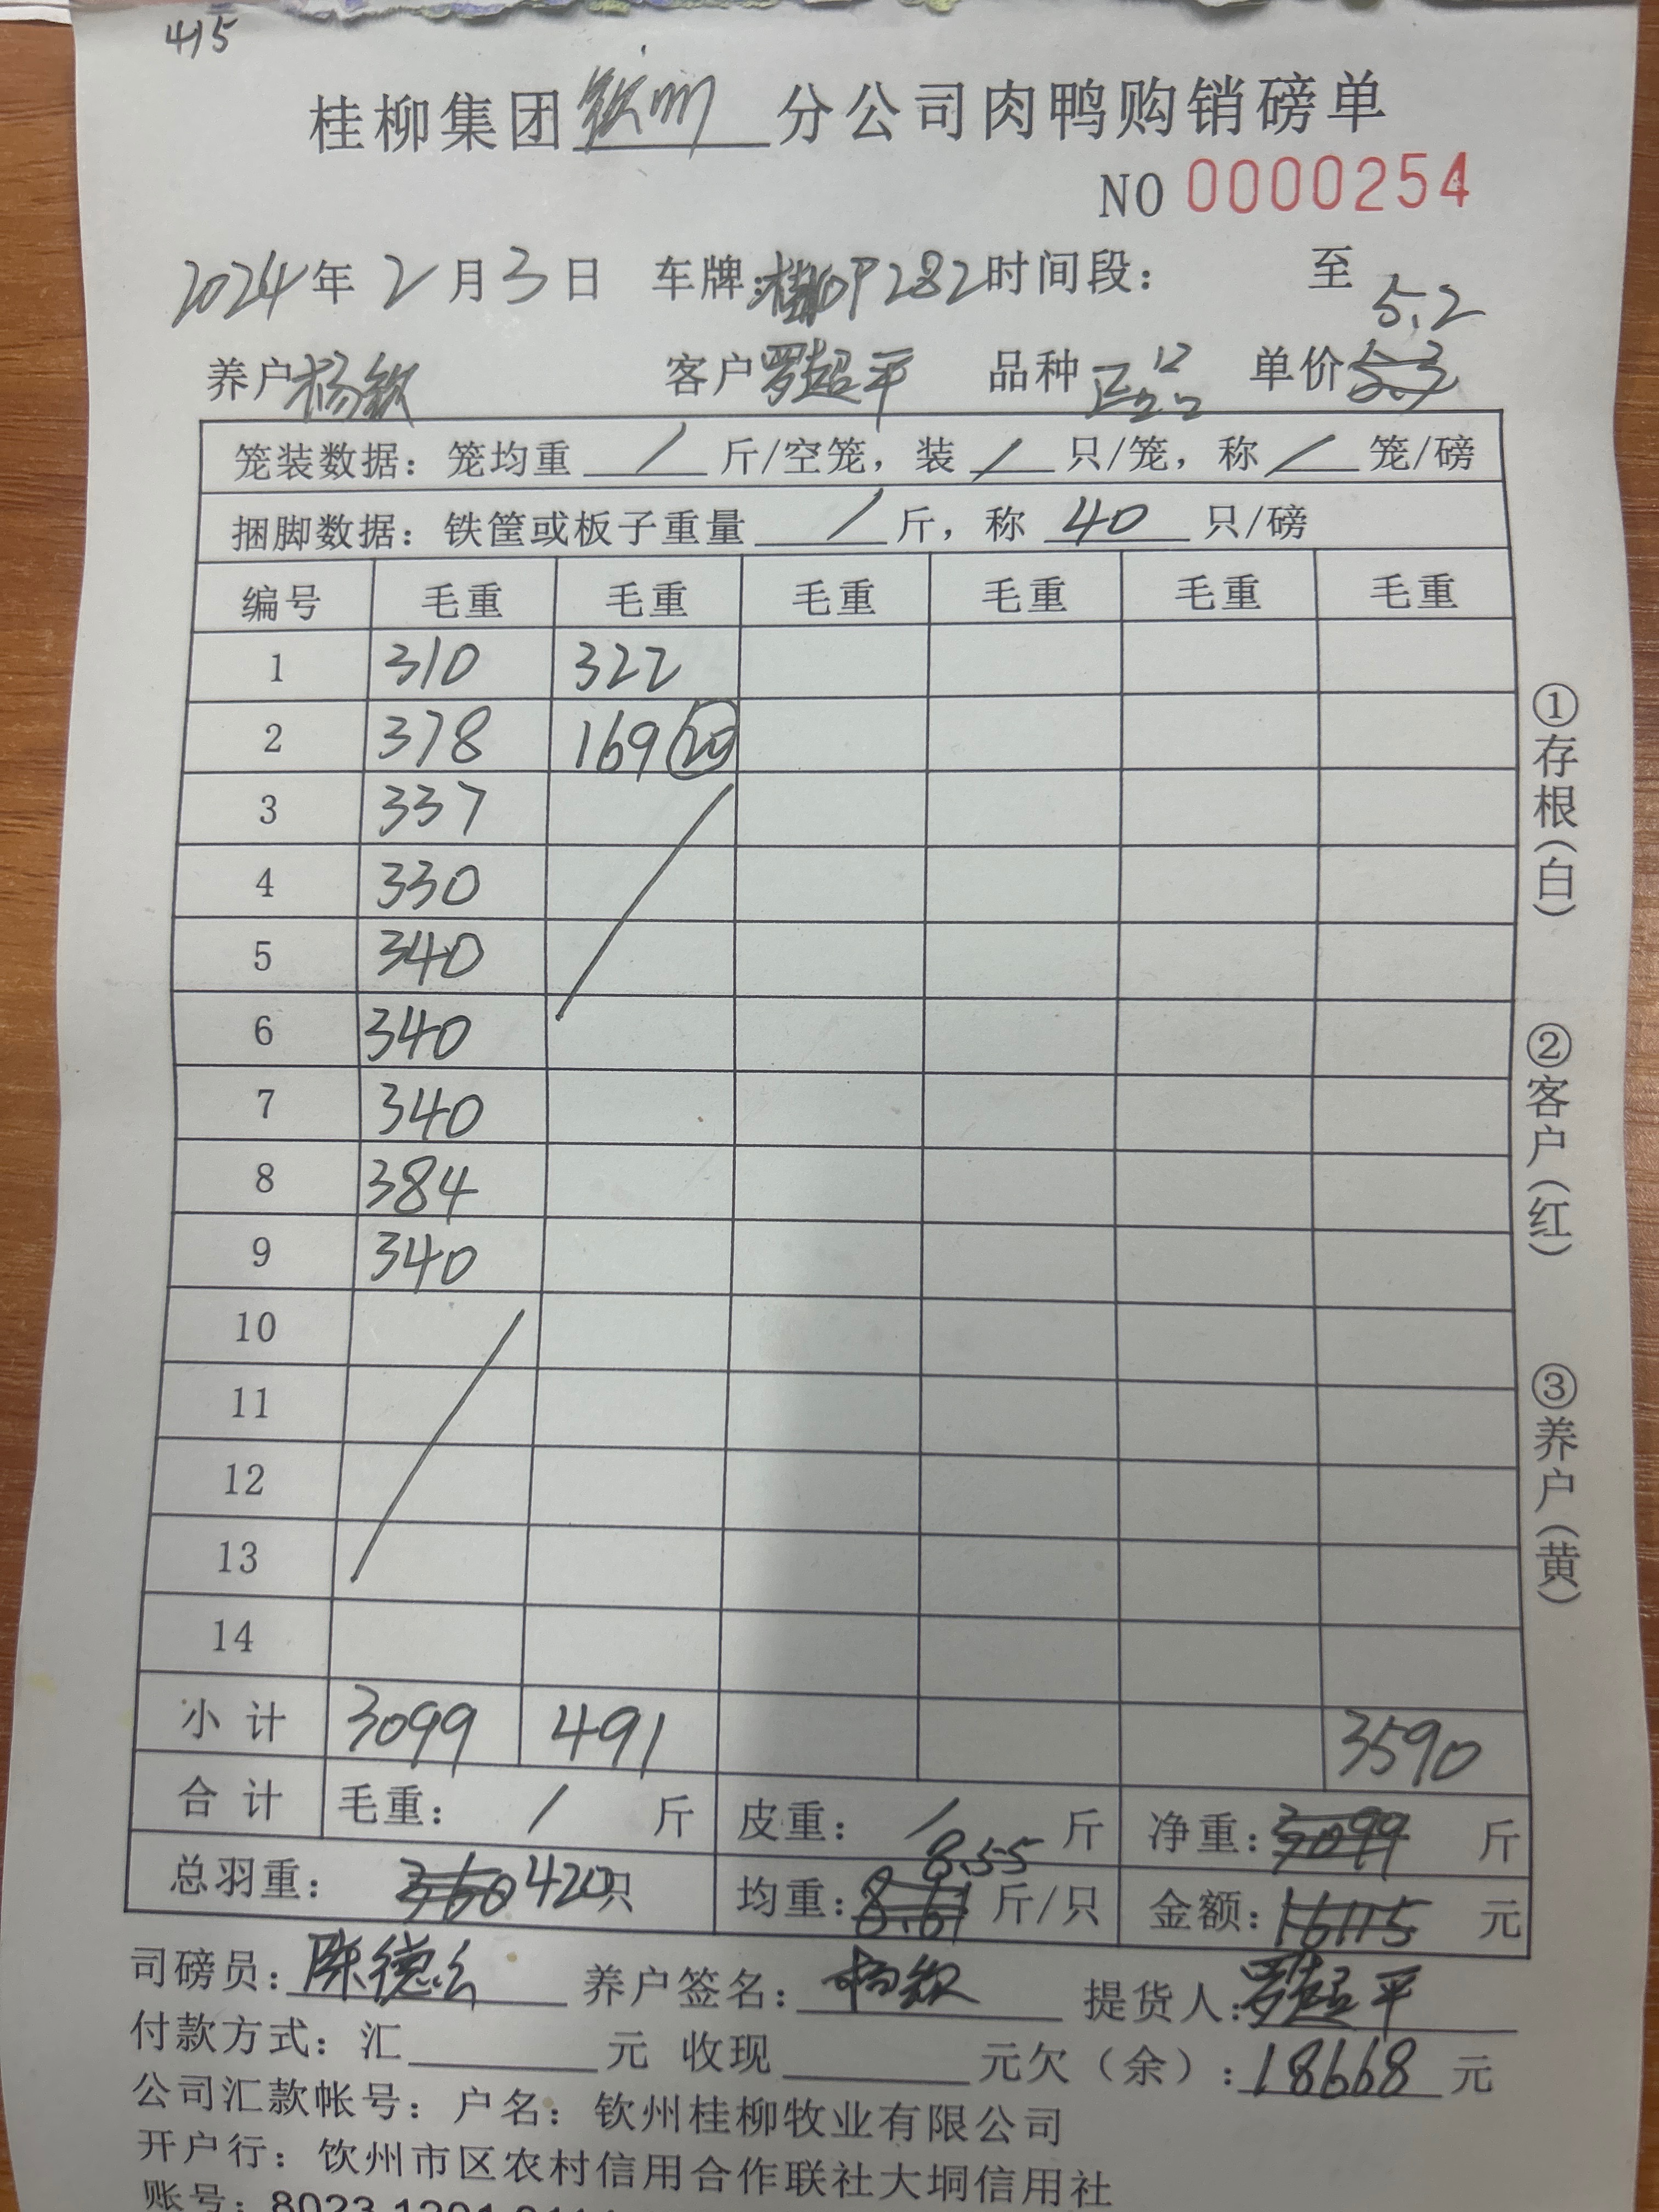 415
桂柳集团钦州分公司肉鸭购销磅单
NO 0000254
2024年2月3日 车牌:桂 282时间段: 至
5.2
养户杨钦 客户罗超平 品种 单价5.3
笼装数据: 笼均重 / 斤/空笼, 装 / 只/笼, 称 / 笼/磅
捆脚数据: 铁筐或板子重量 / 斤, 称 40 只/磅
编号 毛重 毛重 毛重 毛重 毛重 毛重
1 310 322
2 378 169 20
3 337
4 330
5 340
6 340
7 340
8 384
9 340
10
11
12
13
14
小计 3099 491 3590
合计 毛重: / 斤 皮重: / 斤 净重: 3099 斤
8.55
总羽重: 360 420只 均重: 8.61 斤/只 金额: 16115 元
司磅员: 陈德 养户签名: 杨钦 提货人: 罗超平
付款方式: 汇 元 收现 元欠(余): 18668 元
公司汇款帐号: 户名: 钦州桂柳牧业有限公司
开户行: 钦州市区农村信用合作联社大垌信用社
账号: 8023 1201
①存根(白)
②客户(红)
③养户(黄)